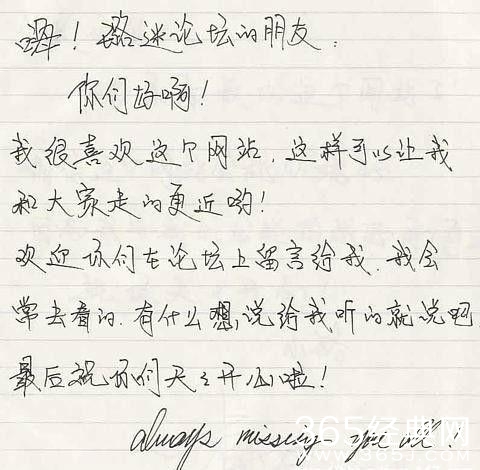 嘿！璐迷论坛的朋友：
你们好啊！
我很喜欢这个网站，这样可以让我
和大家走的更近哟！
欢迎你们在论坛上留言给我，我会
常去看的，有什么想说给我听的就说吧
最后祝你们天天开心啦！
always missing you all!
365经典网
www.365J.com